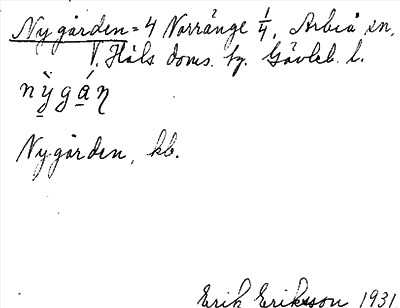 Nygården = 4 Norränge 1/4, Arbrå sn,
V. Häls doms. fg. Gävleb. l.
nỳgán
Nygården, kb.
Erik Eriksson 1931